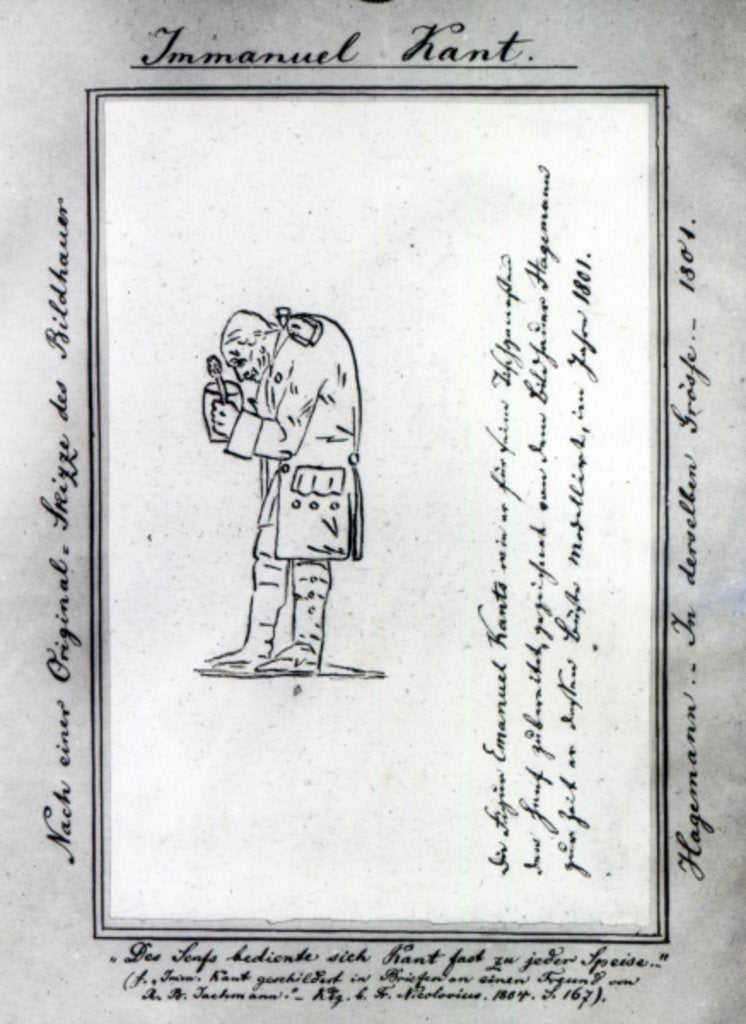 Immanuel Kant.
Nach einer Original=Skizze des Bildhauer
Die Figur Emanuel Kants wie er für seine Tischgenossen
den Senf zubereitet, gezeichnet von dem Bildhauer Hagemann
zur Zeit er dessen Büste Modellirte, im Jahre 1801.
Hagemann.- In derselben Grösse.- 1801.
„Des Senfs bediente sich Kant fast zu jeder Speise."
(s. „Imm. Kant geschildert in Briefen an einen Freund von
R. B. Jachmann."- Kbg. b. F. Nicolovius. 1804. S. 167).